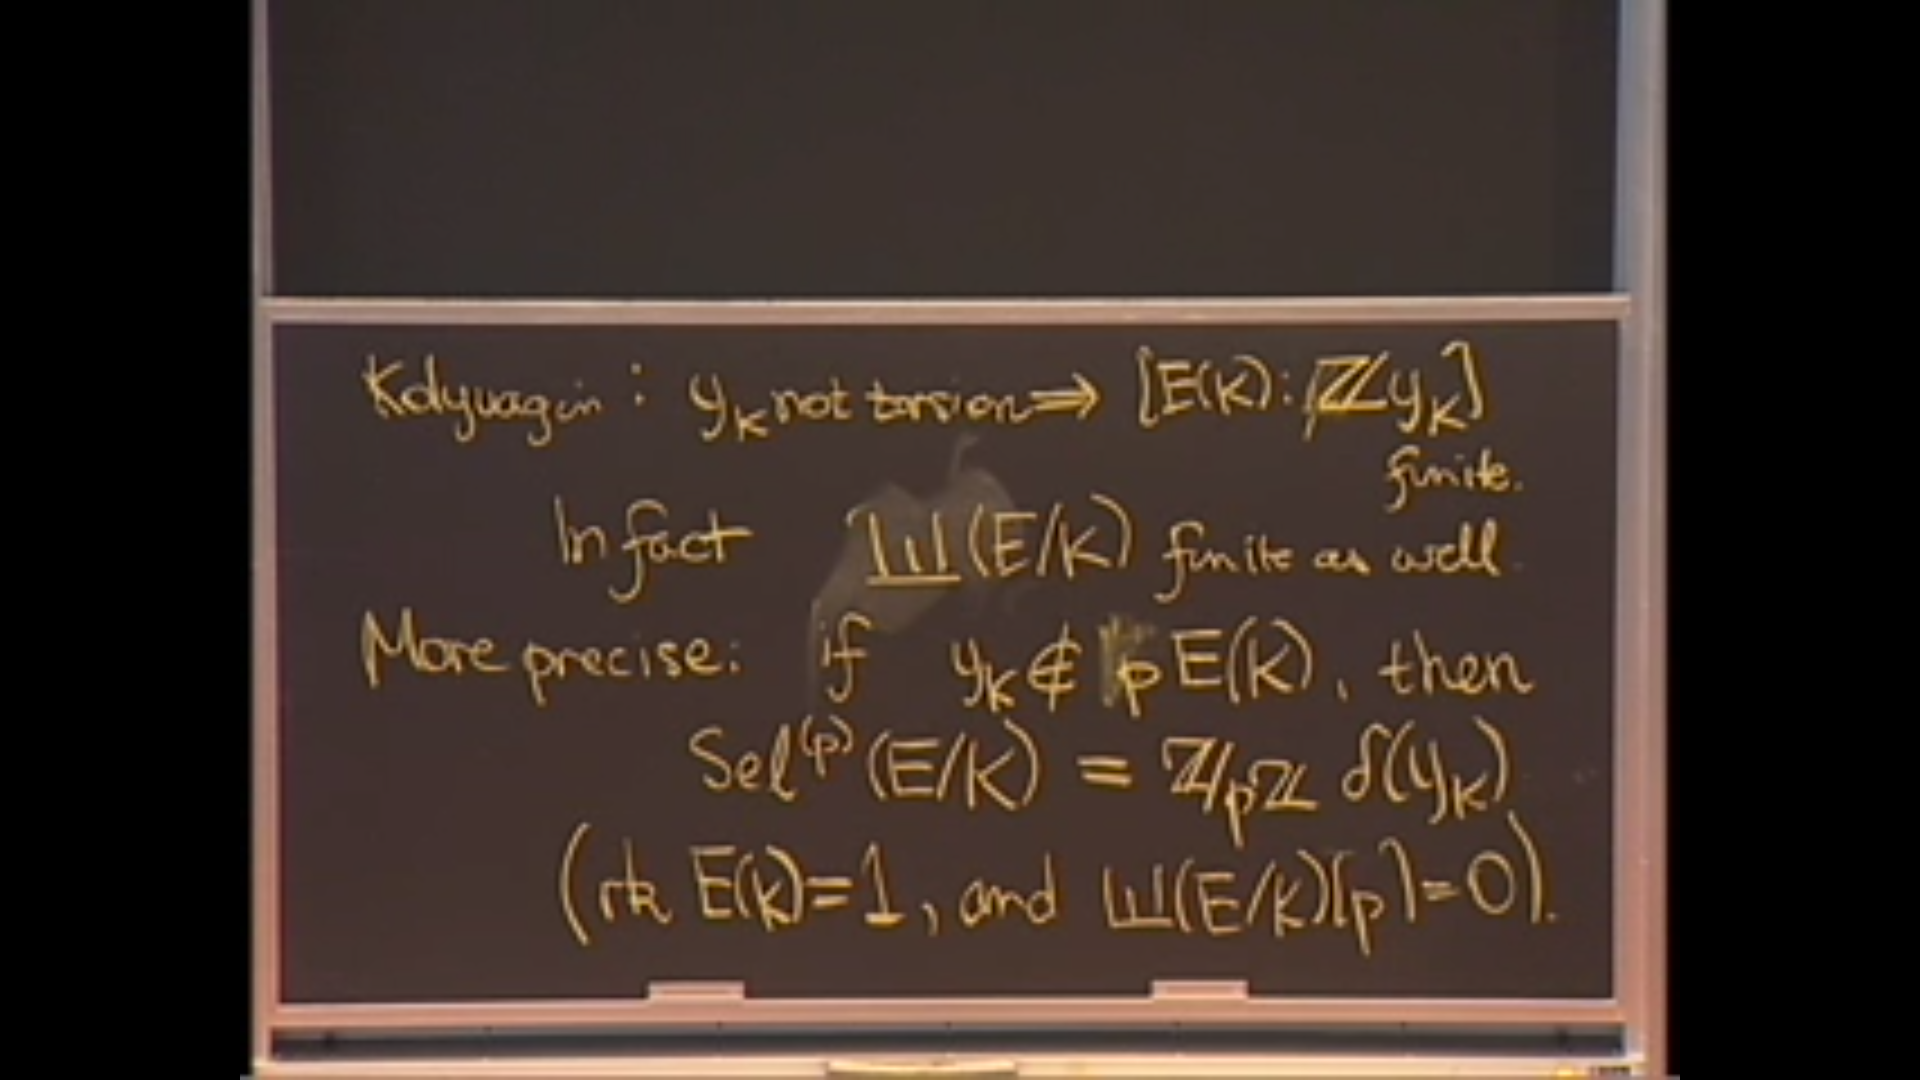 Kolyvagin : y_K not torsion ⇒ [E(K) : ℤy_K]
finite.
In fact Ш(E/K) finite as well.
More precise: if y_K ∉ pE(K), then
Sel^(p)(E/K) = ℤ/pℤ δ(y_K)
(rk E(K)=1, and Ш(E/K)[p]=0).